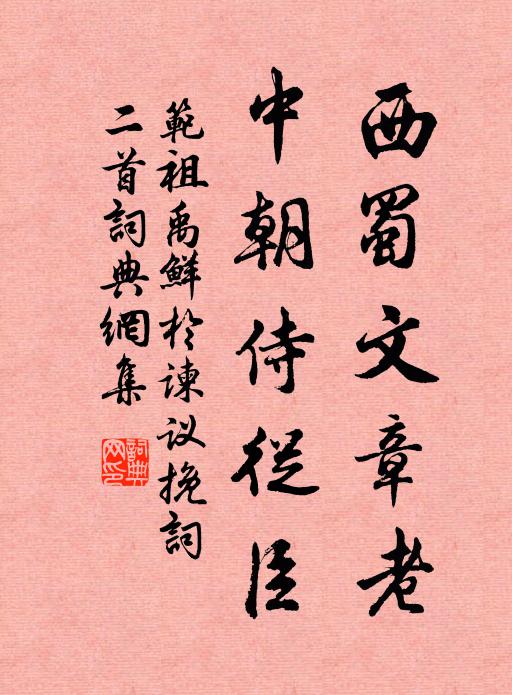 西蜀文章老
中朝侍從臣
範祖禹鮮於諫议挽詞
二首詞典網集
詞典
网印